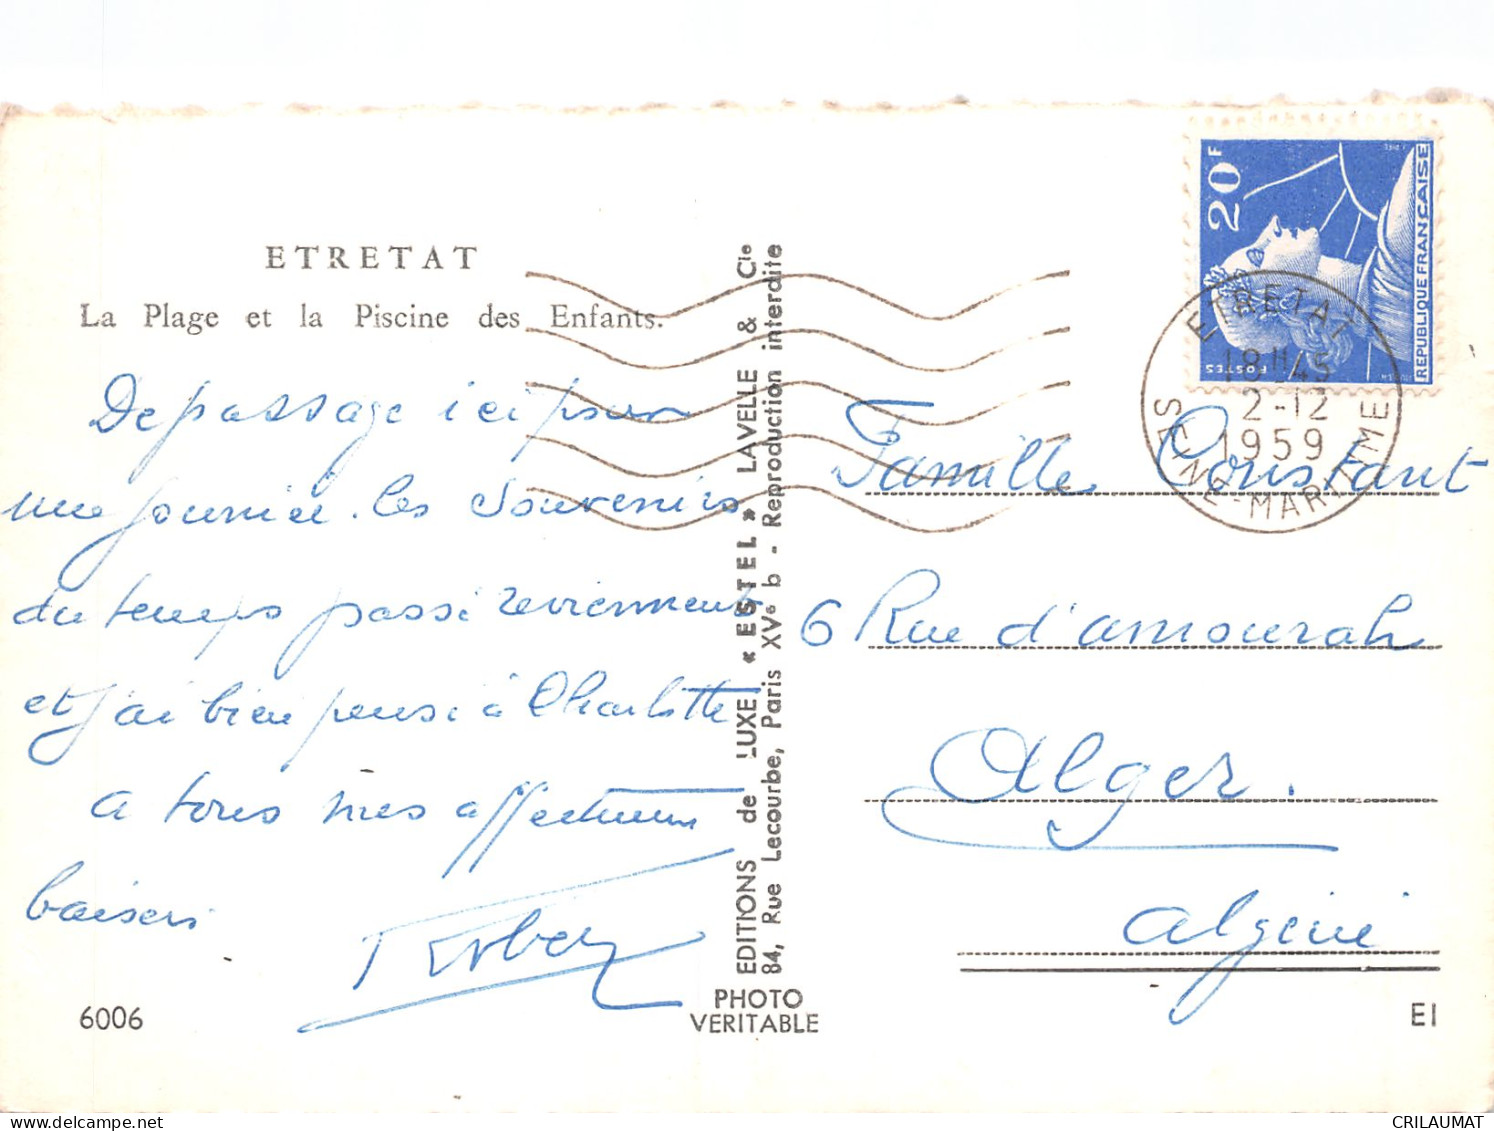 ETRETAT
La Plage et la Piscine des Enfants.
De passage ici pour
une journée. les souvenirs
du temps passé reviennent
et j'ai bien pensé à Charlotte
a tous mes affectueux
baisers
Robert
6006
EDITIONS de LUXE « ESTEL » LAVELLE & Cie
84, Rue Lecourbe, Paris XVe b - Reproduction interdite
PHOTO
VERITABLE
20F
POSTES
REPUBLIQUE FRANÇAISE
ETRETAT
18H45
2-12
1959
SEINE-MARITIME
Famille Constant
6 Rue d'amourah
Alger.
algérie
EI
CRILAUMAT